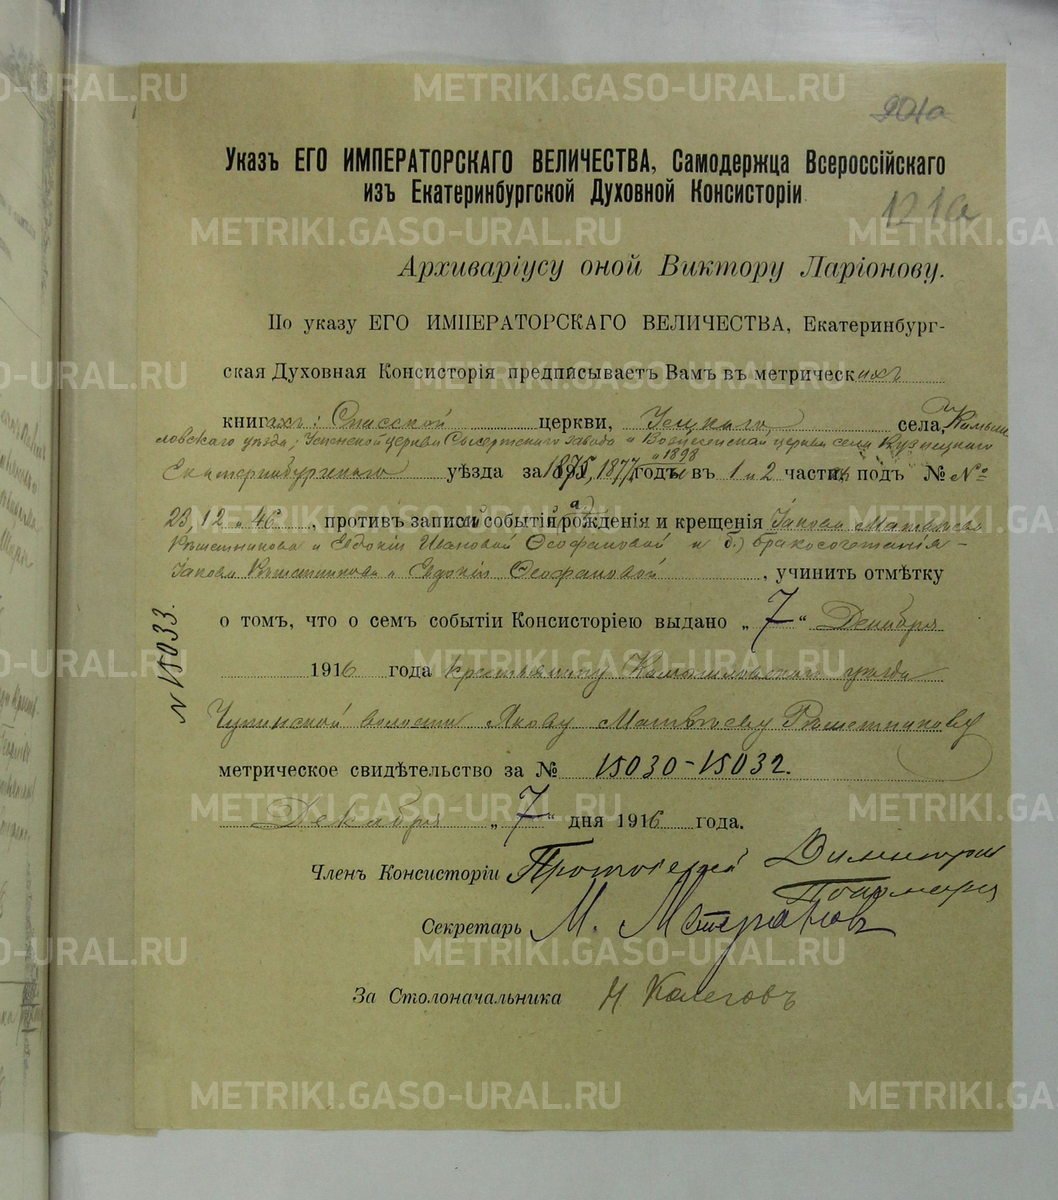 904а
Указъ ЕГО ИМПЕРАТОРСКАГО ВЕЛИЧЕСТВА, Самодержца Всероссійскаго
изъ Екатеринбургской Духовной Консисторіи
121а
Архиваріусу оной Виктору Ларіонову.
По указу ЕГО ИМПЕРАТОРСКАГО ВЕЛИЧЕСТВА, Екатеринбург-
ская Духовная Консисторія предписываетъ Вамъ въ метрическихъ
книгахъ: Спасской церкви, села, Камыш
ловскаго уѣзда, Успенской церкви Сысертскаго завода и Вознесенской церкви села Кузнецкаго
Екатеринбургскаго уѣзда за 1875, 1877 и 1898 годъ въ 1 и 2 частяхъ подъ № №
23, 12 и 46, противъ записей событій а) рожденія и крещенія Іакова Матвѣева
Рѣшетникова и Евдокіи Ивановой Ѳеофановой и б) бракосочетанія
Іакова Рѣшетникова и Евдокіи Ѳеофановой, учинить отмѣтку
о томъ, что о семъ событіи Консисторіею выдано „ 7 “ Декабря
1916 года крестьянину Камышловскаго уѣзда
Чупинской волости Якову Матвѣеву Рѣшетникову
метрическое свидѣтельство за № 15030-15032.
Декабря „ 7 “ дня 1916 года.
№ 15033.
Членъ Консисторіи Протоіерей Димитрій
Секретарь М.
За Столоначальника Н Калеговъ
METRIKI.GASO-URAL.RU